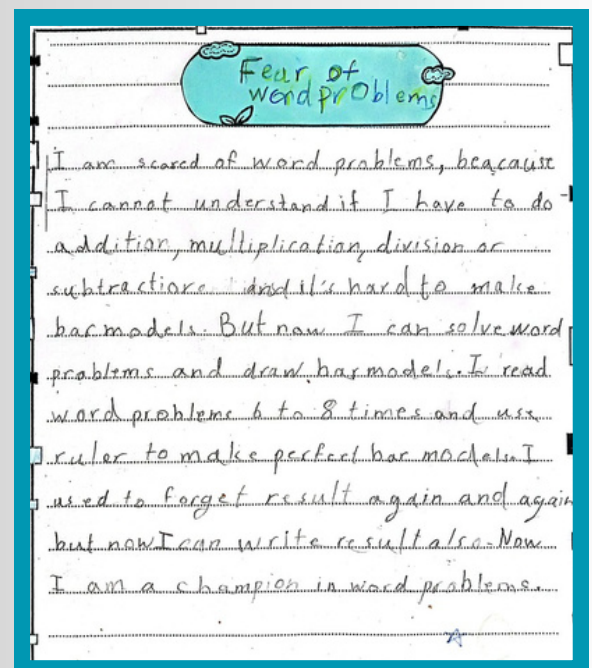 Fear of
word problems
I am scared of word problems, beacause
I cannot understand if I have to do
addition, multiplication, division or
subtraction. And it's hard to make
bar models. But now I can solve word
problems and draw bar models. I read
word problems 6 to 8 times and use
ruler to make perfect bar models. I
used to forget result again and again
but now I can write result also. Now
I am a champion in word problems.